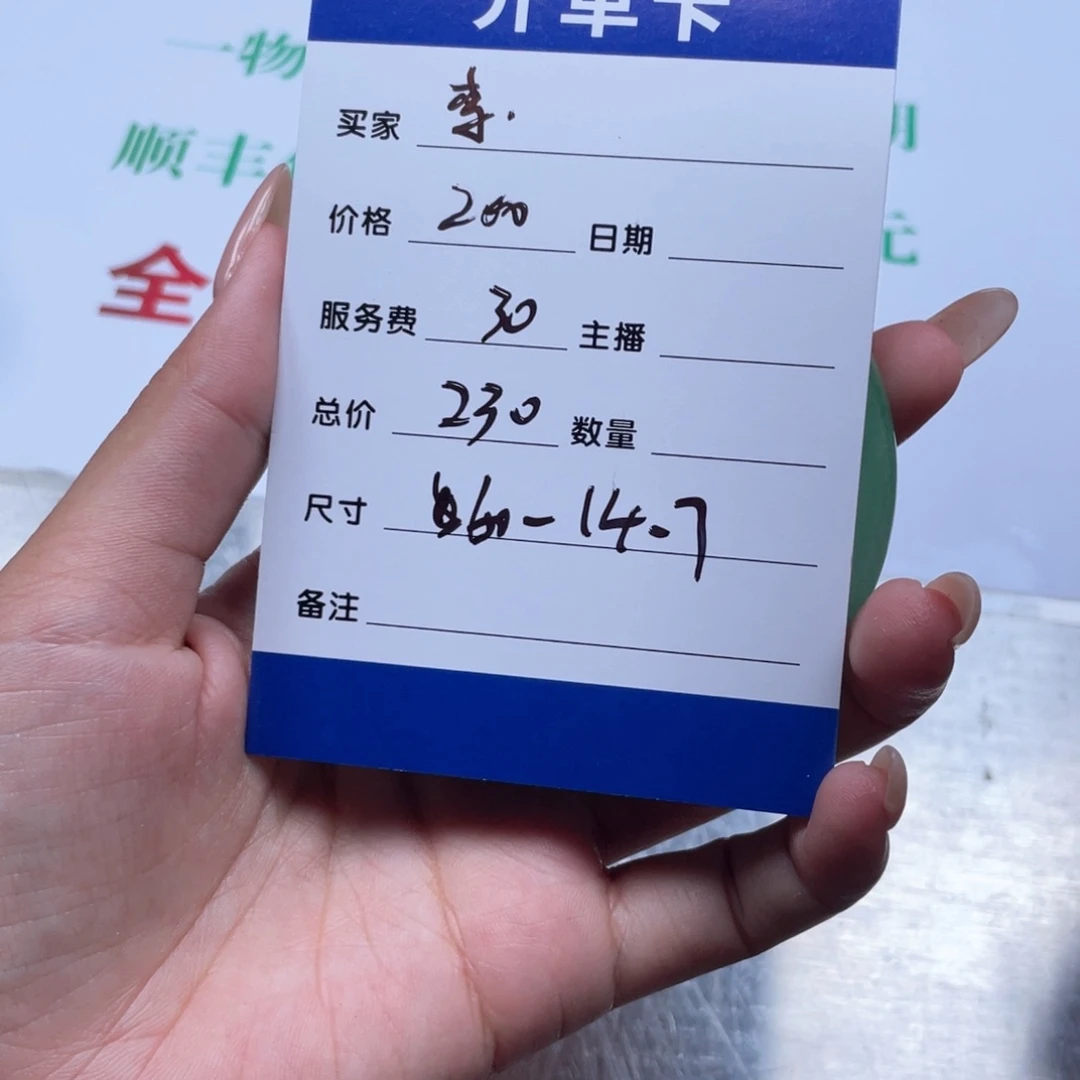 开单卡
一物
顺丰
全
期
元
买家 李.
价格 200 日期
服务费 30 主播
总价 230 数量
尺寸 60-14-7
备注